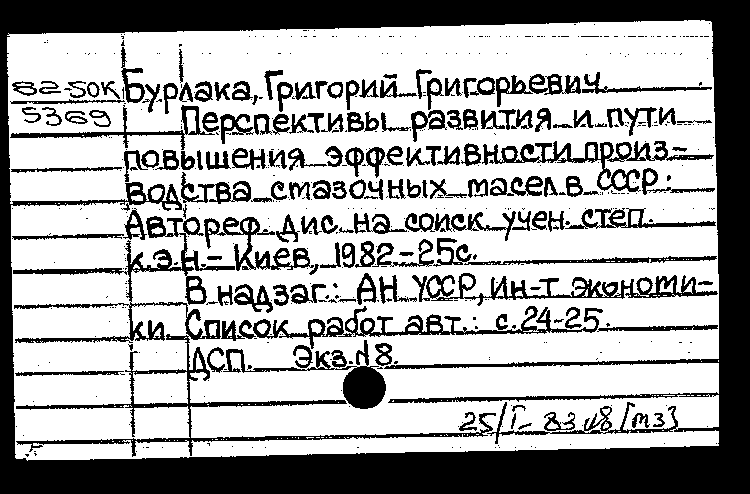 82-50К Бурлака, Григорий Григорьевич.
5369 Перспективы развития и пути
повышения эффективности произ-
водства смазочных масел в СССР:
Автореф. дис. на соиск. учен. степ.
к.э.н. - Киев, 1982 - 25с.
В надзаг.: АН УССР, Ин-т экономи-
ки. Список работ авт.: с.24-25.
ДСП. Экз.№8.
25/I- 83 №8 [мз]